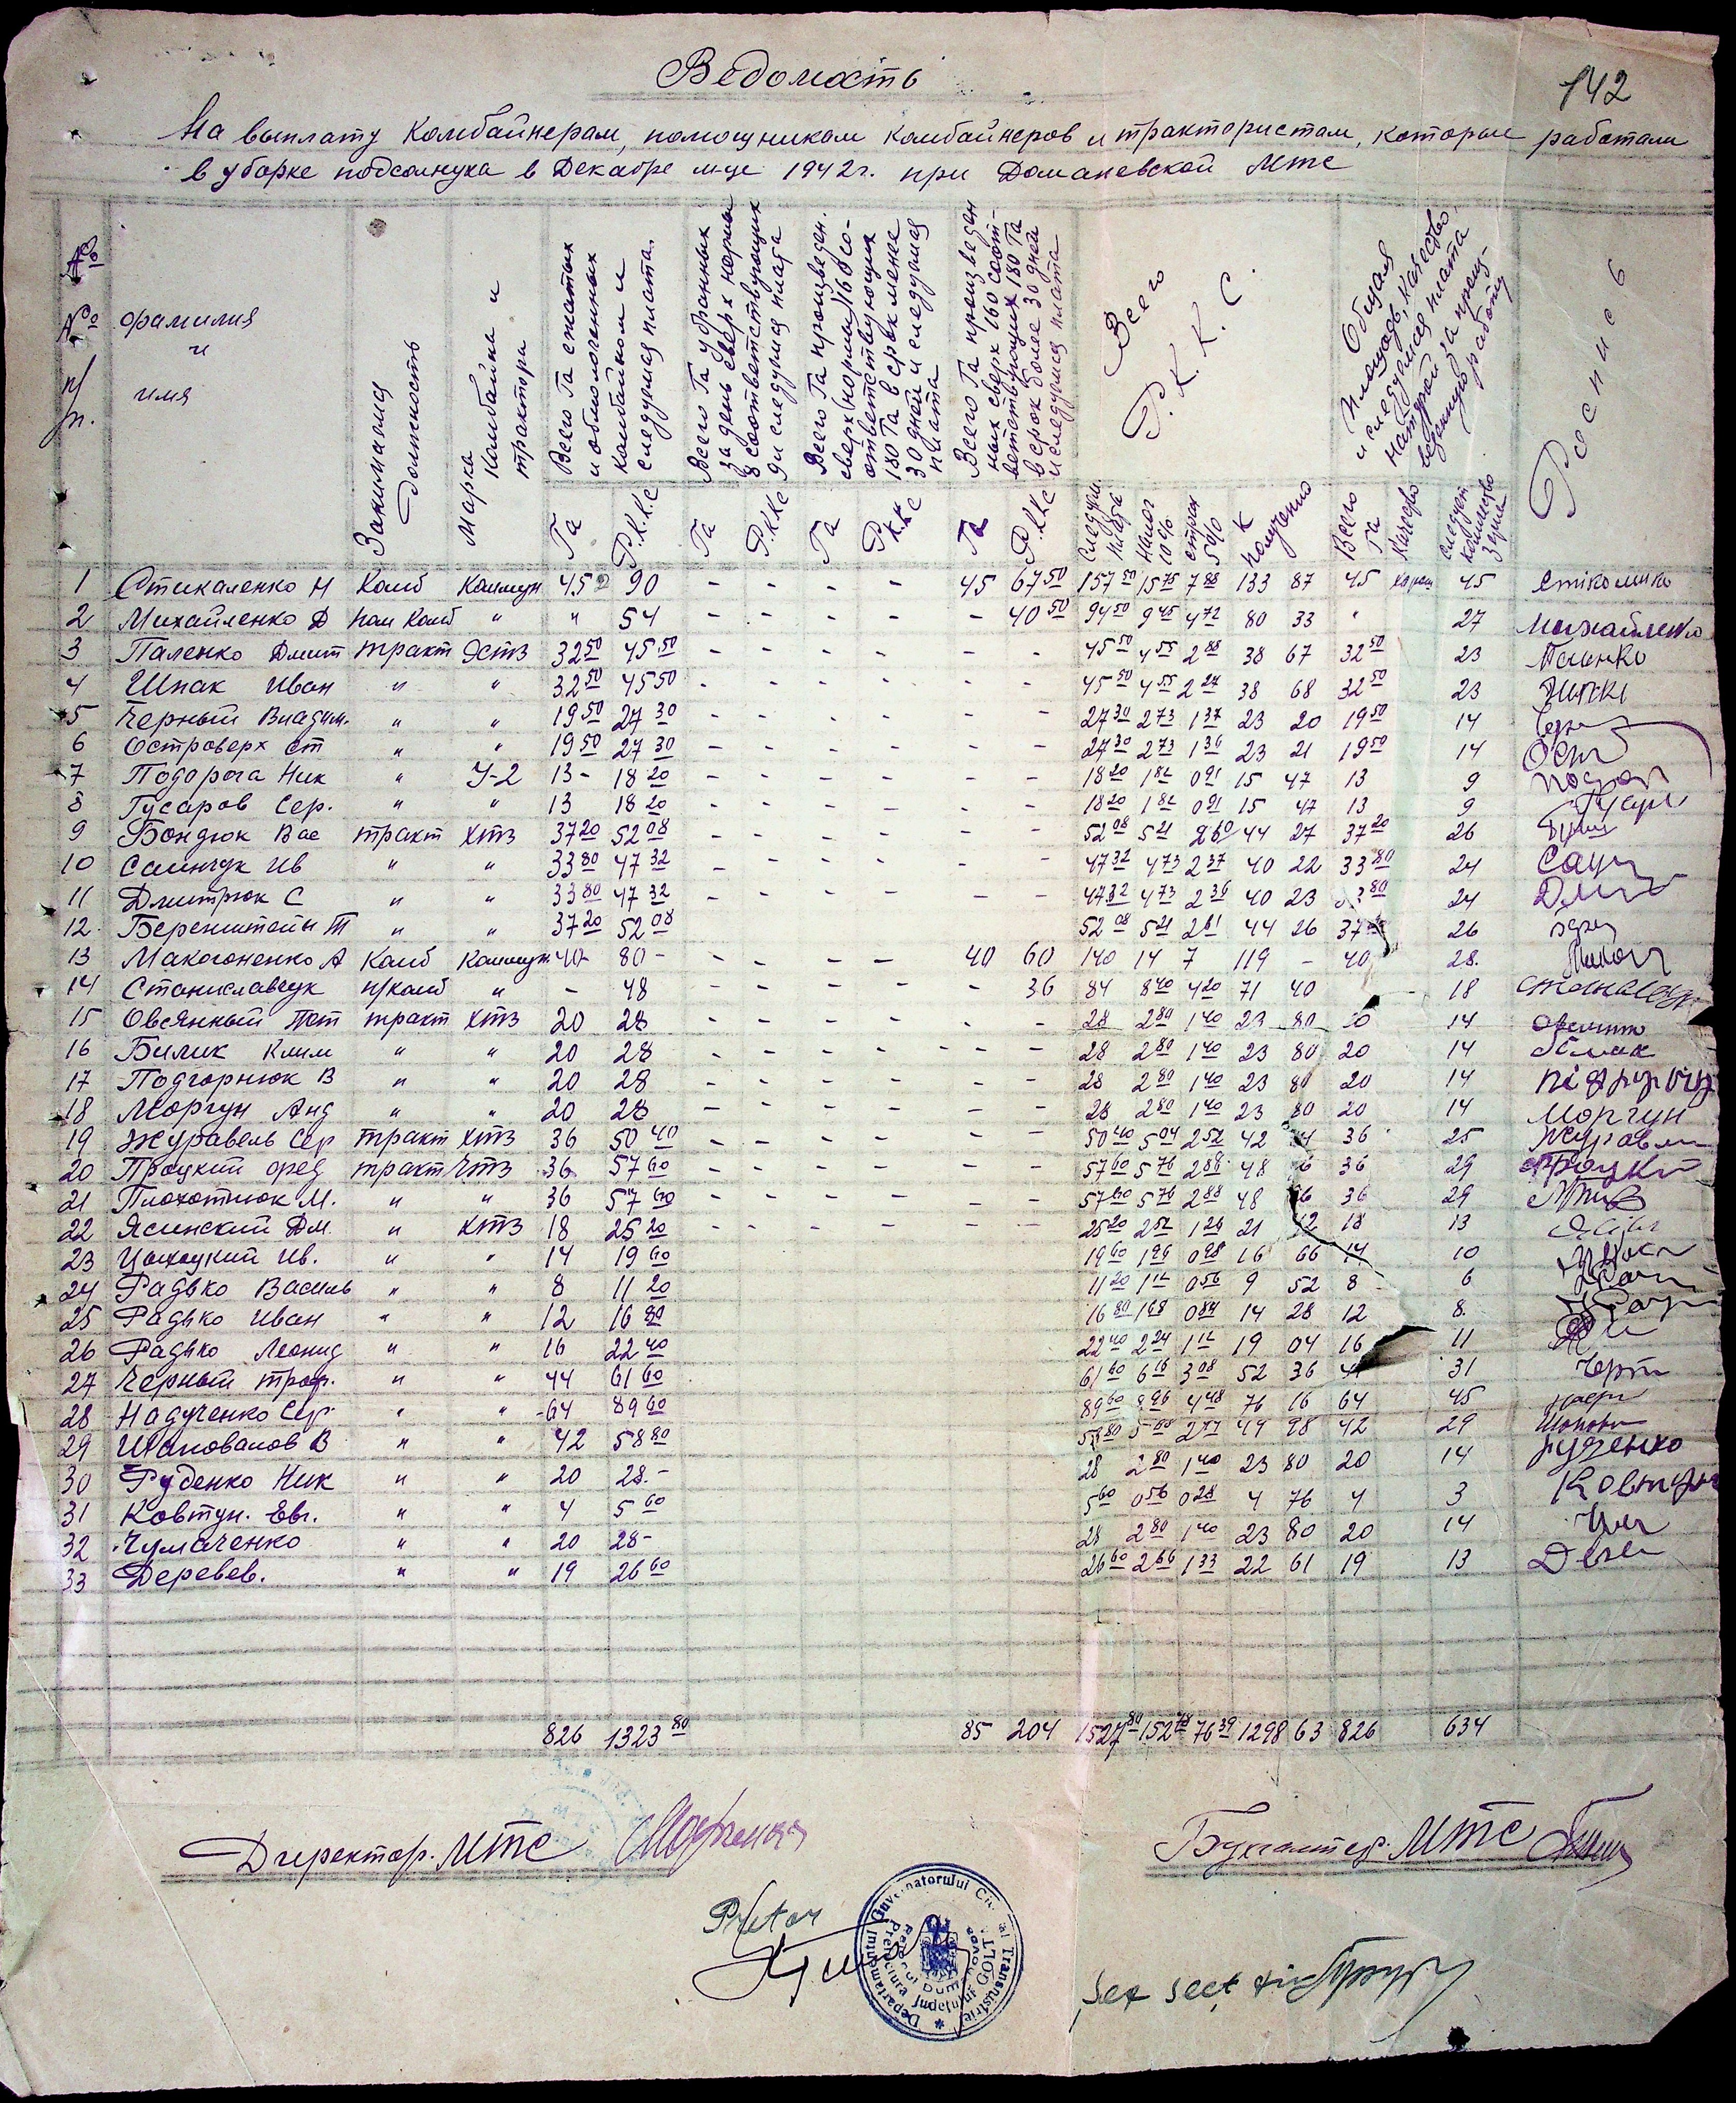 142
Ведомость
На выплату Комбайнерам, помощникам комбайнеров и трактористам, которые работали
в уборке подсолнуха в Декабре м-це 1942 г. при Доманевской МТС
№ № п/п.
фамилия и имя
Занимаемая должность
Марка Комбайна и трактора
Всего Га сжатых и обмолоченных комбайном и следуемая плата.
Всего Га убранных за день сверх нормы в соответствующих и следуемая плата
Всего Га произведен. сверх нормы 160 соответствующих 180 Га в срок менее 30 дней и следуемая плата
Всего Га произведенных сверх 160 соответствующих 180 Га в срок более 30 дней и следуемая плата
Всего Р.К.К.С.
Общая площадь, качество, и следуемая плата натурой за произведенную работу
Роспись
Га Р.К.К.С Га Р.ККС Га Р.К.КС Га Р.ККС Следуем. плата налог 10% страх 5% К получению Всего Га Качество следует количество зерна
1 Стикаленко Н Комб Коммун 45 90 - - - - 45 67 50 157 50 15 75 7 88 133 87 45 хорош 45
2 Михайленко Д пом Комб " " 54 - - - - - 40 50 94 50 9 45 4 72 80 33 " 27 Михайленко
3 Паленко Дмит тракт ЯСТЗ 32 50 45 50 - - - - - - 45 50 4 55 2 28 38 67 32 50 23 Паленко
4 Шпак Иван " " 32 50 45 50 - - - - - - 45 50 4 55 2 27 38 68 32 50 23
5 Черный Владим. " " 19 50 27 30 - - - - - - 27 30 2 73 1 37 23 20 19 50 14
6 Островерх Ст " " 19 50 27 30 - - - - - - 27 30 2 73 1 36 23 21 19 50 14
7 Подорога Ник " У-2 13 - 18 20 - - - - - - 18 20 1 82 0 91 15 47 13 9
8 Гусаров Сер. " " 13 18 20 - - - - - - 18 20 1 82 0 91 15 47 13 9
9 Бондюк Вас тракт ХТЗ 37 20 52 08 - - - - - - 52 08 5 21 2 60 44 27 37 20 26
10 Саинчук Ив " " 33 80 47 32 - - - - - - 47 32 4 73 2 37 40 22 33 80 24
11 Дмитрюк С " " 33 80 47 32 - - - - - - 47 32 4 73 2 36 40 23 3 80 24
12. Беренштейн Т " " 37 20 52 08 52 08 5 21 2 61 44 26 37 26
13 Макогоненко А Комб Коммун. 40 - 80 - - - - - 40 60 140 14 7 119 - 40 28.
14 Станиславчук п/комб " - 48 - - - - - 36 84 8 40 4 20 71 40 18
15 Овсянный Пот тракт ХТЗ 20 28 - - - - - - 28 2 80 1 40 23 80 20 14
16 Билик Клим " " 20 28 - - - - - - 28 2 80 1 40 23 80 20 14
17 Подгорнюк В " " 20 28 - - - - - - 28 2 80 1 40 23 80 20 14
18 Моргун Анд " " 20 28 - - - - - - 28 2 80 1 40 23 80 20 14 Моргун
19 Журавель Сер тракт ХТЗ 36 50 40 - - - - - - 50 40 5 04 2 52 42 4 36 25
20 Процкий Фред тракт ЧТЗ 36 57 60 - - - - - - 57 60 5 76 2 88 48 6 36 29 Процкий
21 Плохотнюк М. " " 36 57 60 - - - - - - 57 60 5 76 2 88 48 6 36 29
22 Ясинский Дм. " ХТЗ 18 25 20 - - - - - - 25 20 2 52 1 26 21 42 18 13
23 Ив. " " 14 19 60 19 60 1 96 0 98 16 66 14 10
24 Радько Василь " " 8 11 20 11 20 1 12 0 56 9 52 8 6
25 Радько Иван " " 12 16 80 16 80 1 68 0 84 14 28 12 8
26 Радько Леонид " " 16 22 40 22 40 2 24 1 12 19 04 16 11
27 Черный Троф. " " 44 61 60 61 60 6 16 3 08 52 36 44 31
28 Надученко Сер. " " 64 89 60 89 60 8 96 4 48 76 16 64 45
29 Шаповалов В " " 42 58 80 58 80 5 88 2 94 49 98 42 29
30 Руденко Ник " " 20 28.- 28 2 80 1 40 23 80 20 14 Руденко
31 Ковтун. Евг. " " 4 5 60 5 60 0 56 0 28 4 76 4 3 Ковтун
32 Чумаченко " " 20 28- 28 2 80 1 40 23 80 20 14
33 Деревев. " " 19 26 60 26 60 2 66 1 33 22 61 19 13
826 1323 80 85 204 1527 80 152 78 76 39 1298 63 826 634
Директор. МТС
Бухгалтер. МТС
Pretor
Guvernatorului Civil al Transnistriei Departamentul
Prefectura Județului GOLTA